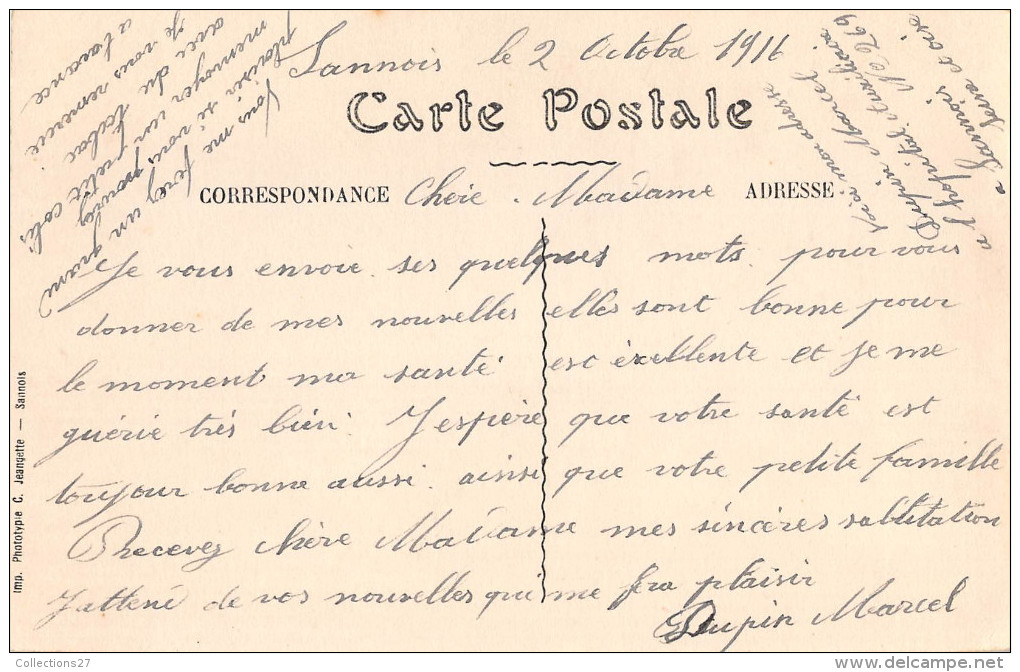 Sannois le 2 Octobre 1916
Carte Postale
CORRESPONDANCE
ADRESSE
Chère Madame
Je vous envoie ses quelques mots pour vous
donner de mes nouvelles elles sont bonne pour
le moment ma santé est éxellente et je me
guérie très bien. J'espère que votre santé est
toujour bonne aussi. ainsi que votre petite famille
Recevez chère Madame mes sincères sablutation
J'attend de vos nouvelles qui me fera plaisir
Dupin Marcel
Vous me ferez un grand
plaisir si vous pouvez
menvoyer un petit colis
avec du tabac
je vous remercie
a lavance
Voici mon adresse
Dupin Marcel
a l'hopital Auxiliaire No 269
a Sannois
Seine et oise
Imp. Phototypie C. Jeangette — Sannois
Collections27
www.delcampe.net